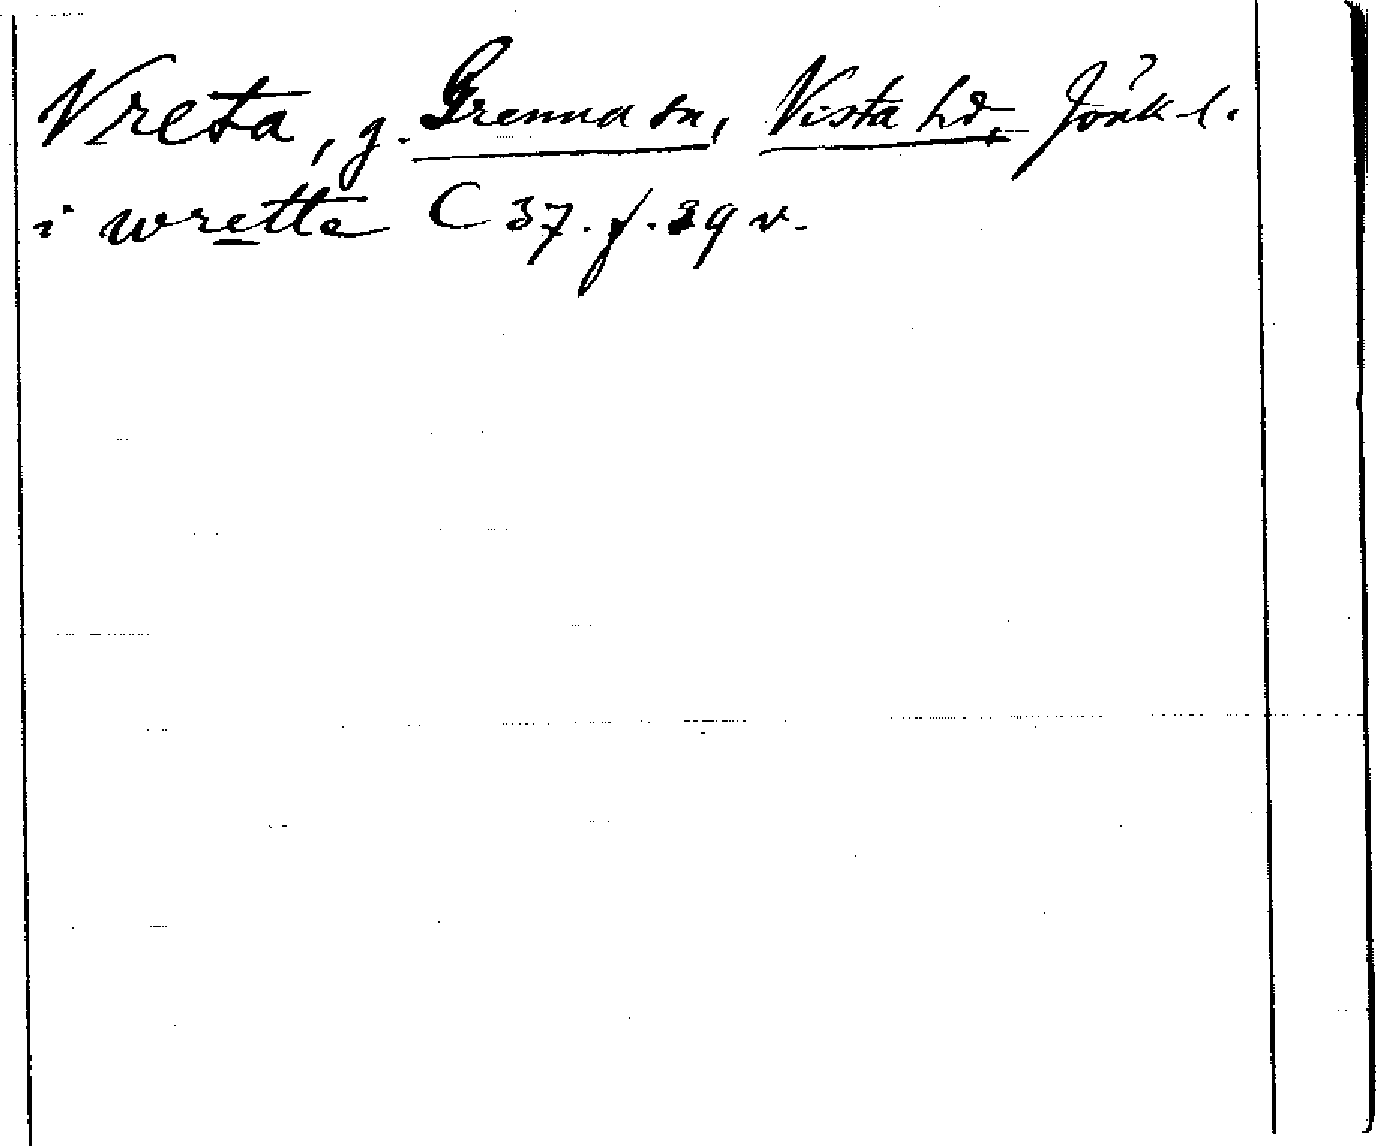 Vreta, g. Grenna sn, Vista hd, Jönk l.
i wrette C 37. f. 29 v.